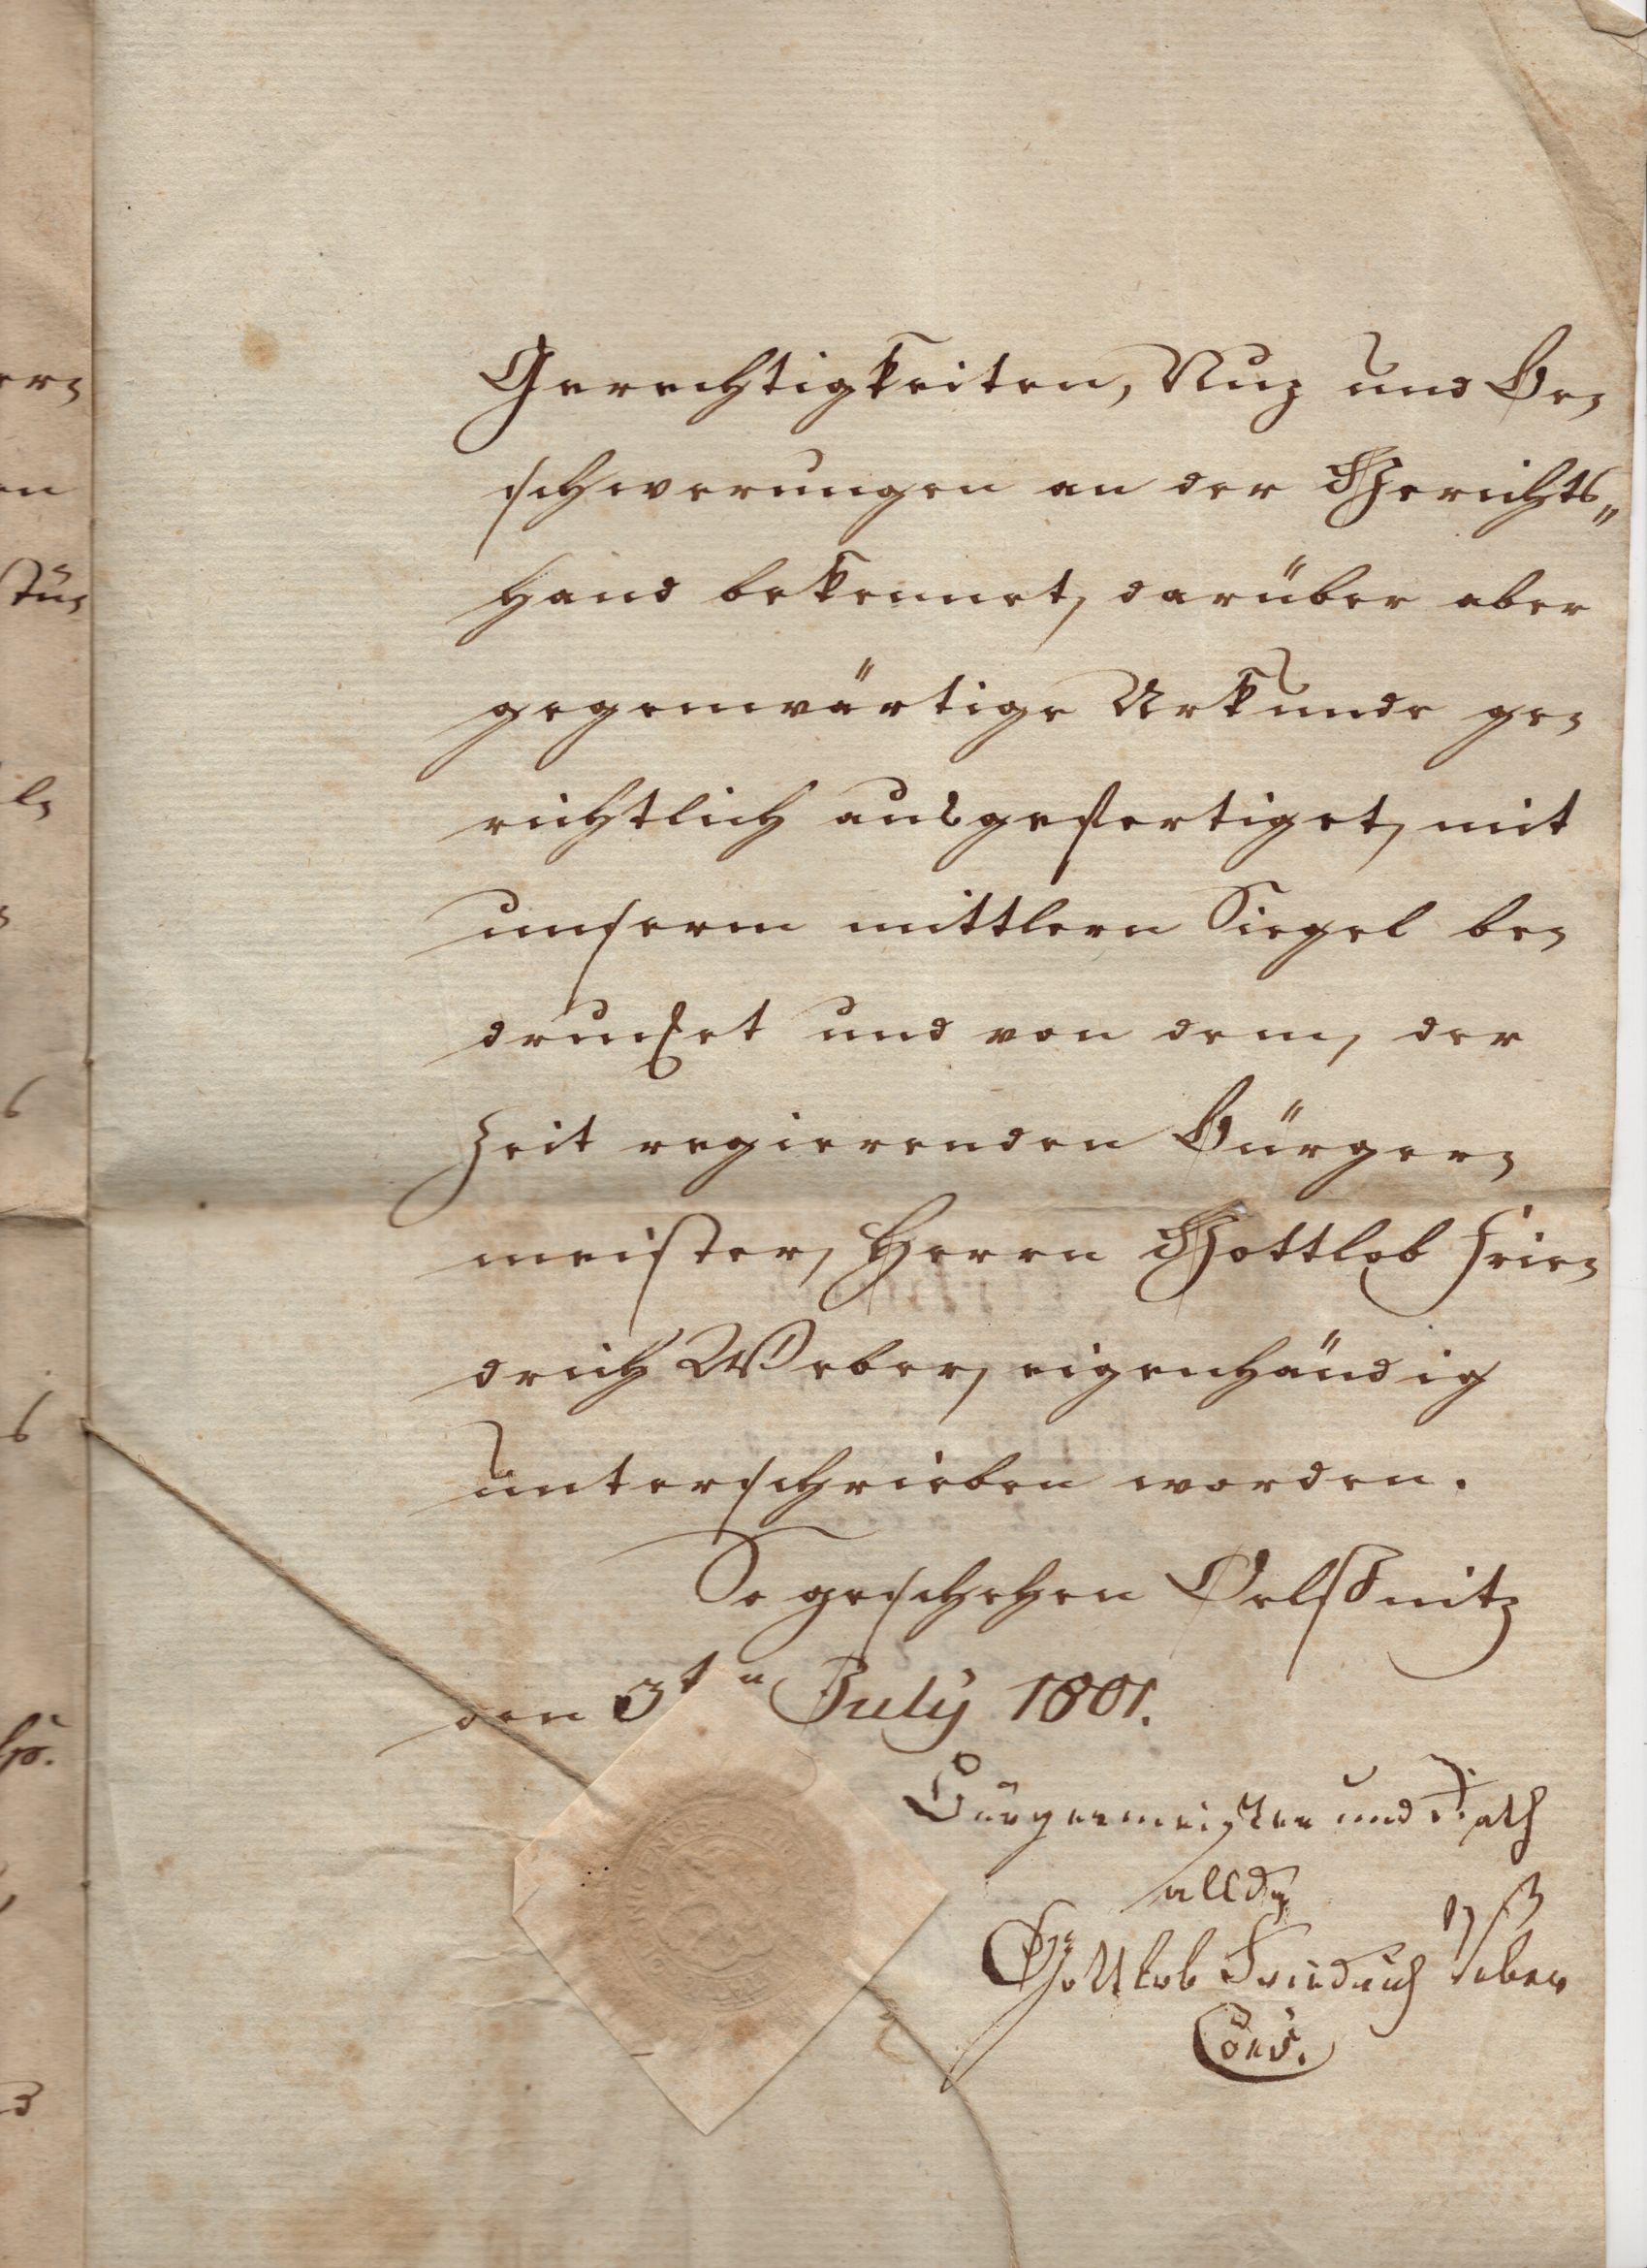 Gerechtigkeiten, Nuz und Be-
schwerungen an der Gerichts-
hand bekennet, darüber aber
gegenwärtige Urkunde ge-
richtlich ausgefertiget, mit
unserm mittlern Siegel be-
drucket und von dem, der
Zeit regierenden Bürger-
meister, Herrn Gottlob Frie-
drich Weber, eigenhändig
unterschrieben worden.
So geschehen Oelßnitz
den 3tn July 1801.
Bürgermeister und Rath
allda
Gottlob Friedrich Weber